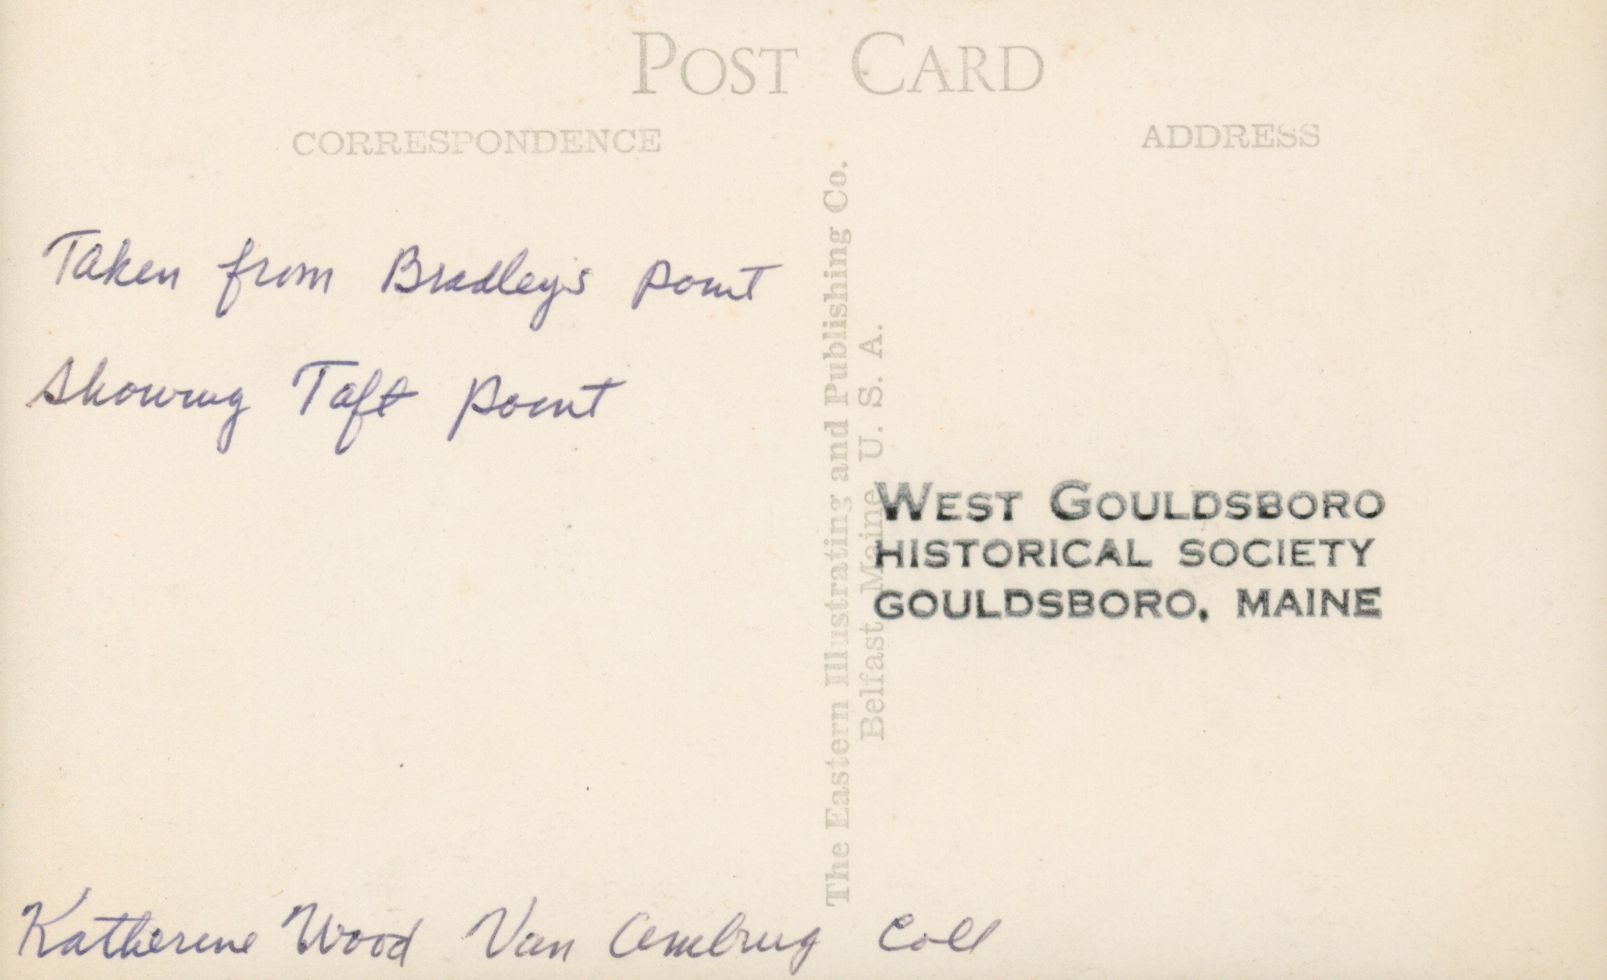 POST CARD
CORRESPONDENCE
ADDRESS
Taken from Bradley's point
showing Taft point
The Eastern Illustrating and Publishing Co.
Belfast, Maine, U. S. A.
WEST GOULDSBORO
HISTORICAL SOCIETY
GOULDSBORO, MAINE
Katherine Wood Van Ambrug Coll